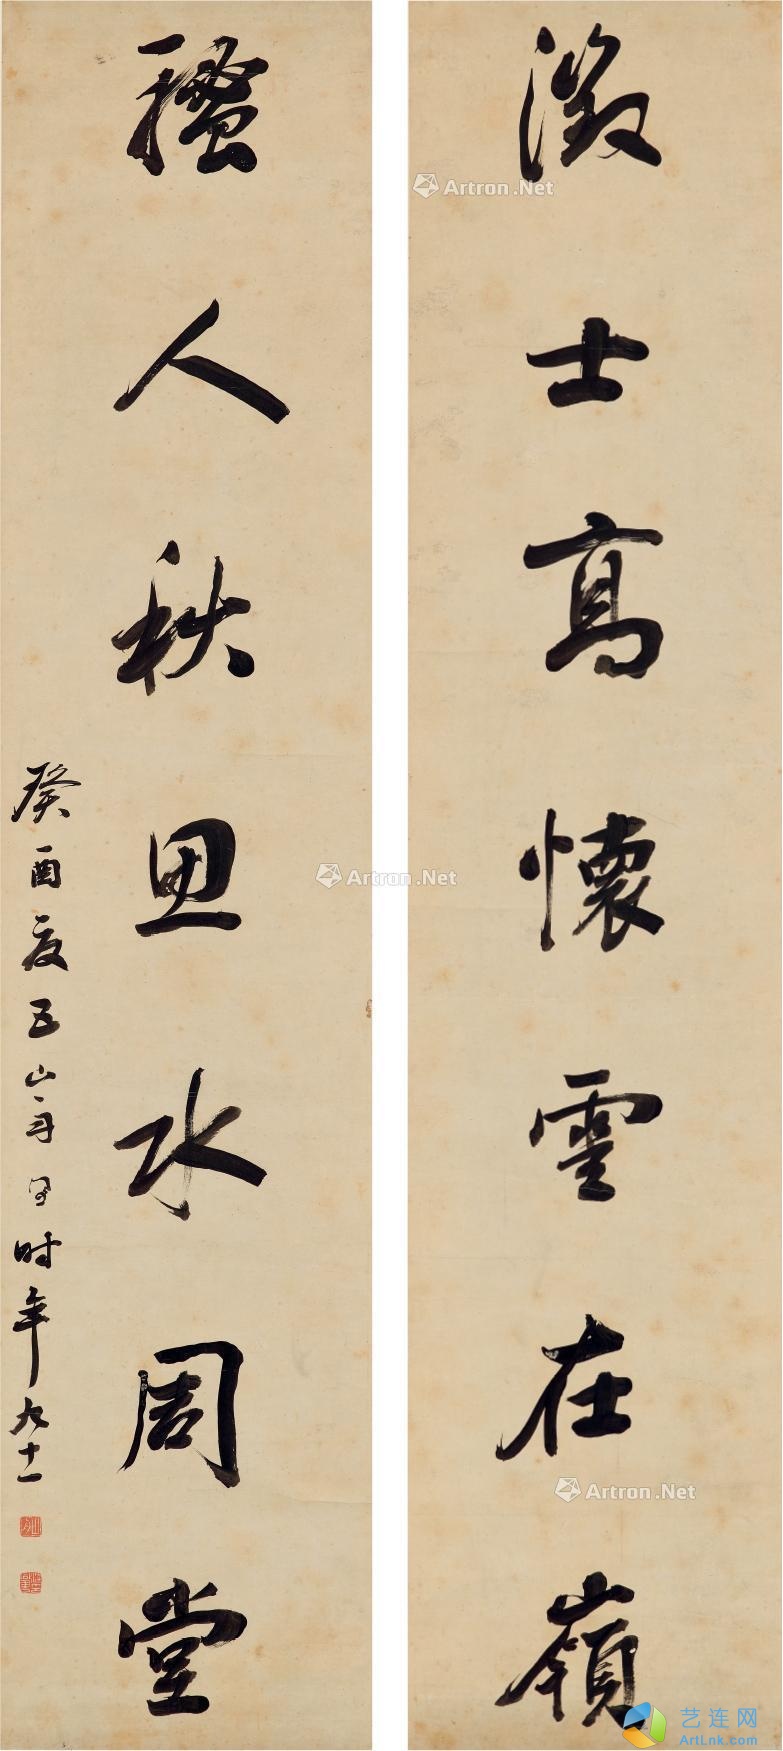 澂士高懷雲在嶺
騷人秋思水周堂
癸酉夏五山舟同書時年九十一
Artron.Net
Artron.Net
Artron.Net
艺连网
ArtLnk.com